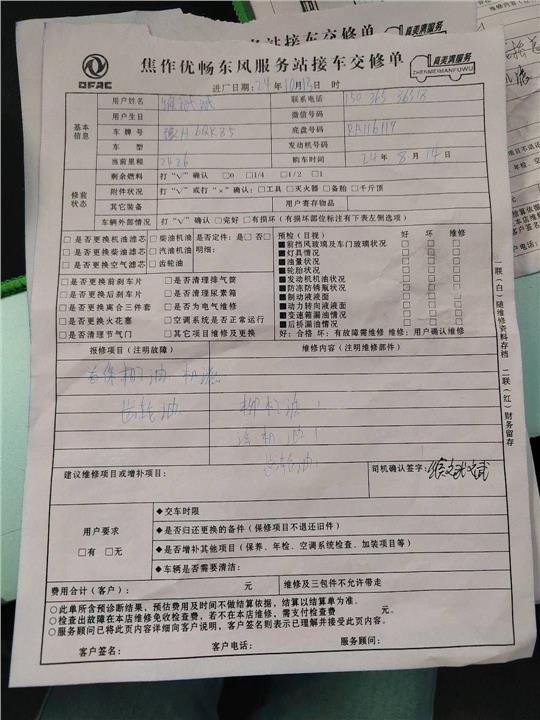 DFAC
焦作优畅东风服务站接车交修单
真美满服务
ZHENMEIMANFUWU
进厂日期：24 年 10 月 13 日 时
基本信息
用户姓名
联系电话
用户生日 微信号码
车牌号 底盘号码 RA116117
车型 发动机号码
当前里程 2426 购车时间 24 年 8 月 14 日
修前状态
剩余燃料 打“√”确认 □0 □1/4 □1/2 □1
附件状况 打“√”或打“×”确认：□工具 □灭火器 □备胎 □千斤顶
其它装备 用户寄存物品
车辆外部情况 打“√”确认 □完好 □有损坏（有损坏部位标注有下表左侧选项）
□是否更换机油滤芯 □柴油机油 是否定件：是□ 否□
□是否更换柴油滤芯 □汽油机油 明细：
□是否更换空气滤芯 □齿轮油
□是否更换前刹车片 □是否清理排气筒
□是否更换后刹车片 □是否清理尿素箱
□是否更换离合三件套 □是否为电气维修
□是否更换火花塞 □空调系统是否正常运行
□是否清理节气门 □其它项目维修及更换
预检（目视） 好 坏 维修
■前挡风玻璃及车门玻璃状况 □ □ □
■灯具情况 □ □ □
■油量状况 □ □ □
■轮胎状况 □ □ □
■发动机机油状况 □ □ □
■防冻防锈瓶状况 □ □ □
■制动液液面 □ □ □
■动力转向液液面 □ □ □
■变速箱漏油情况 □ □ □
■后桥漏油情况 □ □ □
好：合格 坏：有故障需维修 维修：用户确认维修
报修项目（注明故障） 维修内容（注明维修部件）
首保机油 机滤
齿轮油
机油！
齿轮油
建议维修项目或增补项目：
司机确认签字：
用户要求
□有 □无
◆交车时限
◆是否归还更换的备件（保修项目不退还旧件）
◆是否增补其他项目（保养、年检、空调系统检查、加装项目等）
◆车辆是否需要清洁：
费用合计（客户）： 元 维修及三包件不允许带走
○此单所含预诊断结果，预估费用及时间不做结算依据，结算以结算单为准。
○检查出故障在本店维修免收检查费，若不在本店维修，需支付检查费 元。
○服务顾问已将此页内容详细向客户说明，客户签名则表示已理解并接受此页内容。
客户签名： 客户电话： 服务顾问：
一联（白）随维修资料存档 二联（红）财务留存